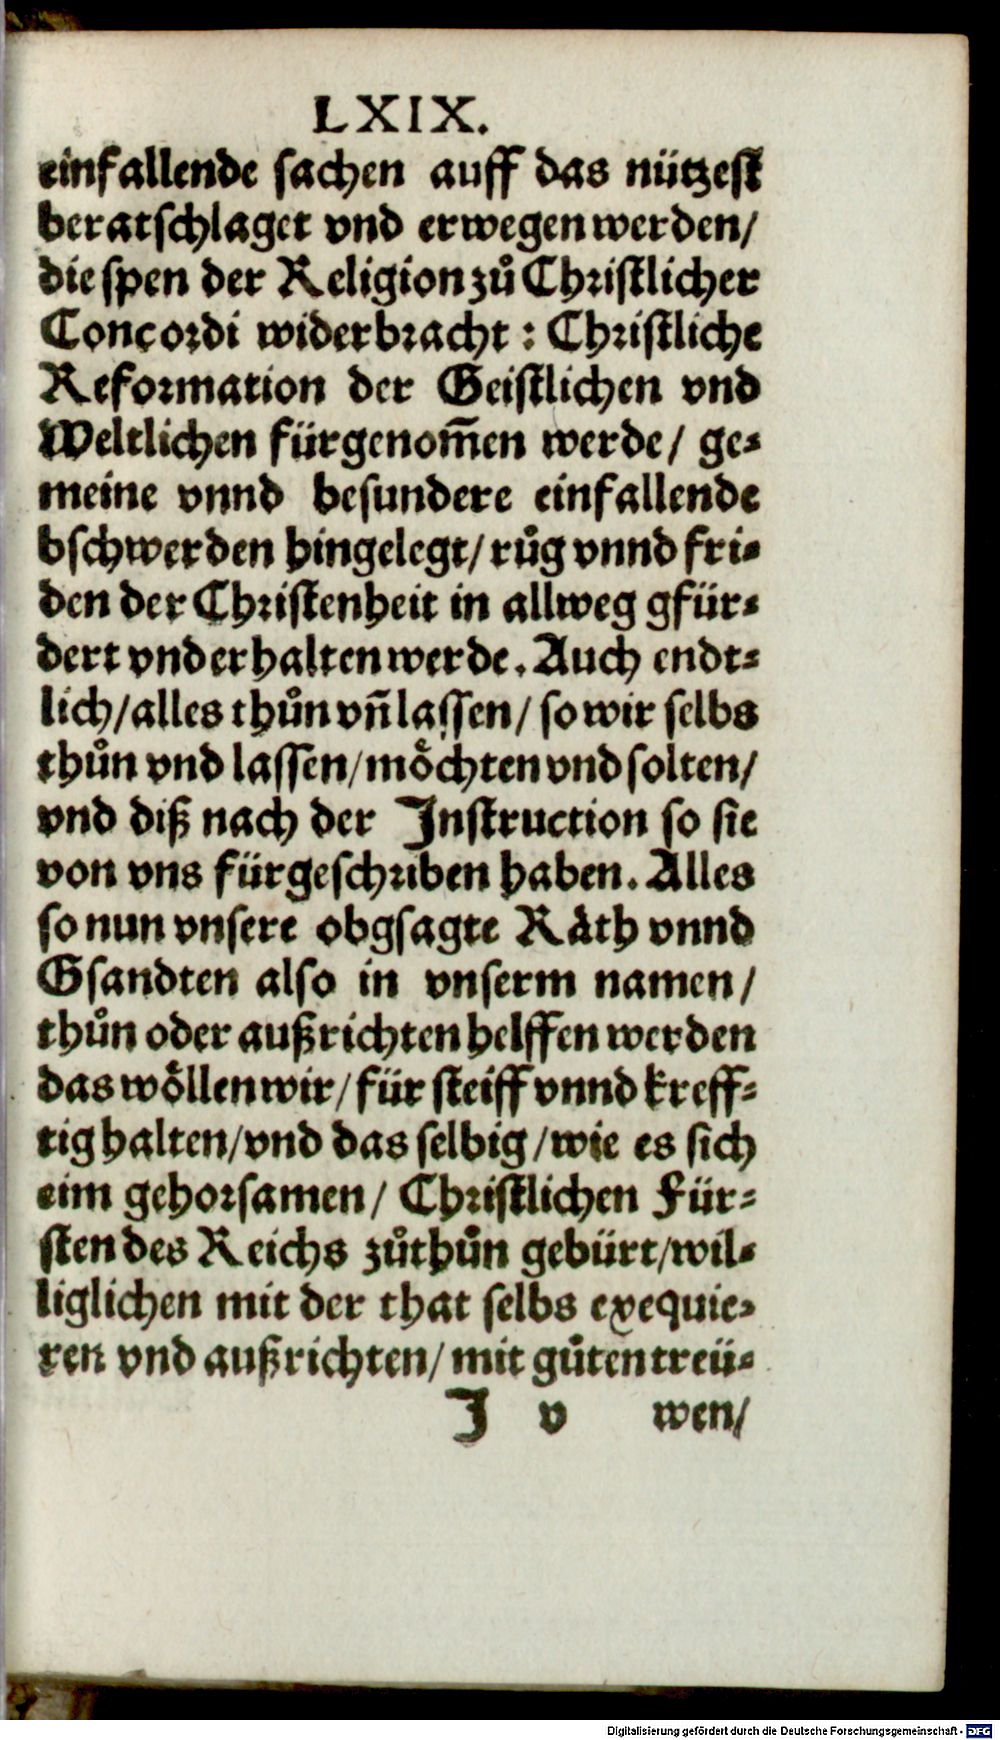 LXIX.
einfallende sachen auff das nützest
beratschlaget vnd erwegen werden/
die spen der Religion zů Christlicher
Concordi widerbracht : Christliche
Reformation der Geistlichen vnd
Weltlichen fürgenom̃en werde/ ge-
meine vnnd besundere einfallende
bschwerden hingelegt/ růg vnnd fri-
den der Christenheit in allweg gfür-
dert vnd erhalten werde. Auch endt-
lich/ alles thůn vñ lassen/ so wir selbs
thůn vnd lassen/ möchten vnd solten/
vnd diß nach der Instruction so sie
von vns fürgeschriben haben. Alles
so nun vnsere obgsagte Räth vnnd
Gsandten also in vnserm namen/
thůn oder außrichten helffen werden
das wöllen wir/ für steiff vnnd kreff-
tig halten/ vnd das selbig/ wie es sich
eim gehorsamen/ Christlichen Für-
sten des Reichs zůthůn gebürt/ wil-
liglichen mit der that selbs exequie-
ren vnd außrichten/ mit gůten treü-
J v wen/
Digitalisierung gefördert durch die Deutsche Forschungsgemeinschaft - DFG